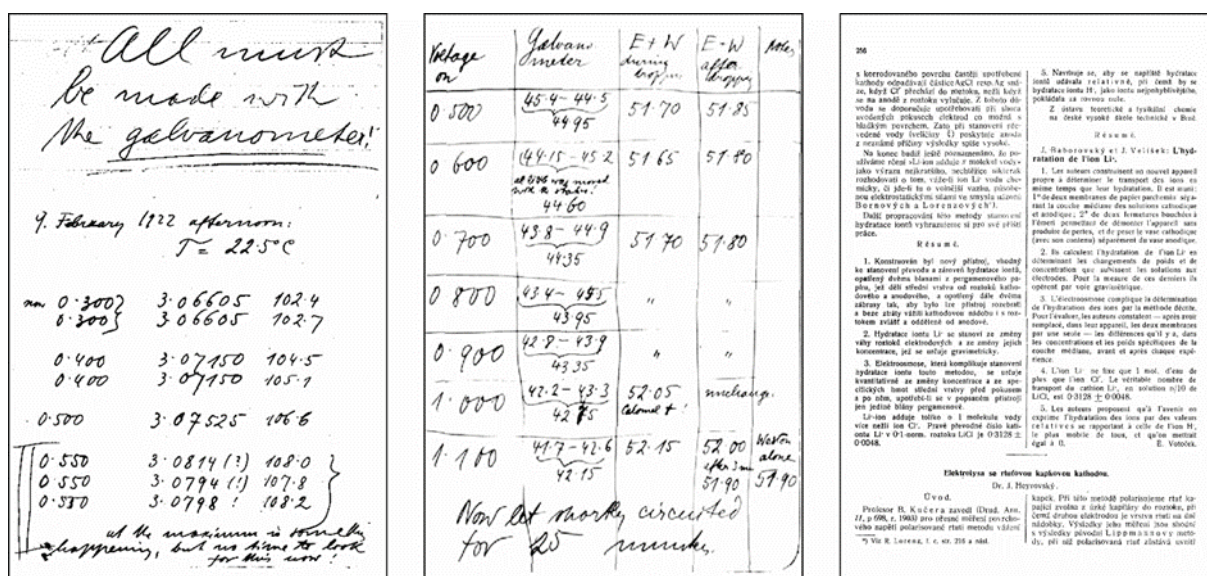 All must
be made with
the galvanometer!
9. February 1922 afternoon:
T = 22.5°C
now 0.300 } 3.06605 102.4
0.300 } 3.06605 102.7
0.400 3.07150 104.5
0.400 3.07150 105.1
0.500 3.07525 106.6
0.550 3.0814 (?) 108.0
0.550 3.0794 (!) 107.8
0.550 3.0798 ! 108.2
at the maximum is something
happening, but no time to look
for this now!
Voltage on Galvanometer E+W during dropping E-W after dropping Notes
0.500 45.4 – 44.5 51.70 51.85
44.95
0.600 (44.15 – 45.2 51.65 51.80
44.60
0.700 43.8 – 44.9 51.70 51.80
44.35
0.800 43.4 – " "
43.95
0.900 42.8 – 43.9 " "
43.35
1.000 42.2 – 43.3 52.05
Calomel +!
1.100 41.7 – 42.6 52.15 52.00 Weston alone
42.15 51.90 51.90
Now let shortly circuited
for 25 minutes.
s korrodovaného povrchu častěji upotřebené
kathody odpadávají částice AgCl
ze, když Cl' přechází do roztoku, nežli když
se na anodě z roztoku vylučuje. Z tohoto dů-
vodu se doporučuje
uvedených pokusech elektrod co možná s
hladkým povrchem. Zato při stanovení pře-
vedené vody
z neznámé příčiny výsledky spíše vysoké.
Na konec budiž ještě poznamenáno, že po-
jako výraz nejkratšího, nechtějíce nikterak
rozhodovati o tom, váže-li ion Li· vodu che-
micky, či jde-li tu o volnější vazbu, působe-
nou elektrostatickými silami ve smyslu názorů
Bornových a Lorenzových¹).
Další propracování této methody stanovení
hydratace iontů vyhrazujeme si pro své příští
práce.
Résumé.
1. Konstruován byl nový přístroj, vhodný
ke stanovení převodu a zároveň hydratace iontů,
opatřený dvěma blanami z pergamenového pa-
píru, jež dělí střední vrstvu od roztoků katho-
dového a anodového, a opatřený dále dvěma
zábrany tak, aby bylo lze přístroj rozebrati
a beze ztráty vážiti kathodovou nádobu i s roz-
tokem zvlášť a odděleně od anodové.
2. Hydratace iontu Li· se stanoví ze změny
váhy roztoků elektrodových a ze změny jejich
koncentrace, jež se určuje gravimetricky.
3. Elektroosmose, která komplikuje stanovení
hydratace iontu touto methodou, se určuje
kvantitativně ze změny koncentrace a ze spe-
cifických hmot střední vrstvy před pokusem
a po něm, upotřebí-li se v popsaném přístroji
jen jediné blány pergamenové.
Li·-ion adduje toliko o 1 molekulu vody
více nežli ion Cl'. Pravé převodné číslo kati-
ontu Li· v 0·1-norm. roztoku LiCl je 0·3128 ±
0·0048.
5. Navrhuje se, aby se napříště hydratace
iontů udávala relativně, při čemž by se
hydratace iontu H·, jako iontu nejpohyblivějšího,
pokládala za rovnou nule.
Z ústavu theoretické a fysikální chemie
na české vysoké škole technické v Brně.
Résumé.
J. Baborovský et J. Velíšek: L'hyd-
ratation de l'ion Li·.
1. Les auteurs construisent un nouvel appareil
propre à déterminer le transport des ions en
même temps que leur hydratation. Il est muni:
1° de deux membranes de papier parchemin sépa-
rant la couche médiane des solutions cathodique
et anodique; 2° de deux fermetures bouchées à
l'émeri permettant de démonter l'appareil sans
produire de pertes, et de peser le vase cathodique
(avec son contenu) séparément du vase anodique.
2. Ils calculent l'hydratation de l'ion Li· en
déterminant les changements de poids et de
concentration que subissent les solutions aux
électrodes. Pour la mesure de ces derniers ils
opèrent par voie gravimétrique.
3. L'électroosmose complique la détermination
de l'hydratation des ions par la méthode décrite.
Pour l'évaluer, les auteurs constatent — après avoir
remplacé, dans leur appareil, les deux membranes
par une seule — les différences qu'il y a, dans
les concentrations et les poids spécifiques de la
couche médiane, avant et après chaque expé-
rience.
4. L'ion Li· ne fixe que 1 mol. d'eau de
plus que l'ion Cl'. Le véritable nombre de
transport du cathion Li·, en solution n/10 de
LiCl, est 0·3128 ± 0·0048.
5. Les auteurs proposent qu'à l'avenir on
exprime l'hydratation des ions par des valeurs
relatives se rapportant à celle de l'ion H·,
le plus mobile de tous, et qu'on mettrait
égal à 0. E. Votoček.
Elektrolysa se rtuťovou kapkovou kathodou.
Dr. J. Heyrovský.
Úvod.
Profesor B. Kučera zavedl (Drud. Ann.
11, p 698, r. 1903) pro přesné měření povrcho-
vého napětí polarisované rtuti metodu vážení
¹) Viz R. Lorenz, l. c. str. 216 a násl.
kapek. Při této metodě polarisujeme rtuť ka-
pající zvolna z úzké kapiláry do roztoku, při
čemž druhou elektrodou je vrstva rtuti na dně
nádobky. Výsledky jeho měření jsou shodné
s výsledky původní Lippmannovy meto-
dy, při níž polarisovaná rtuť zůstává uvnitř